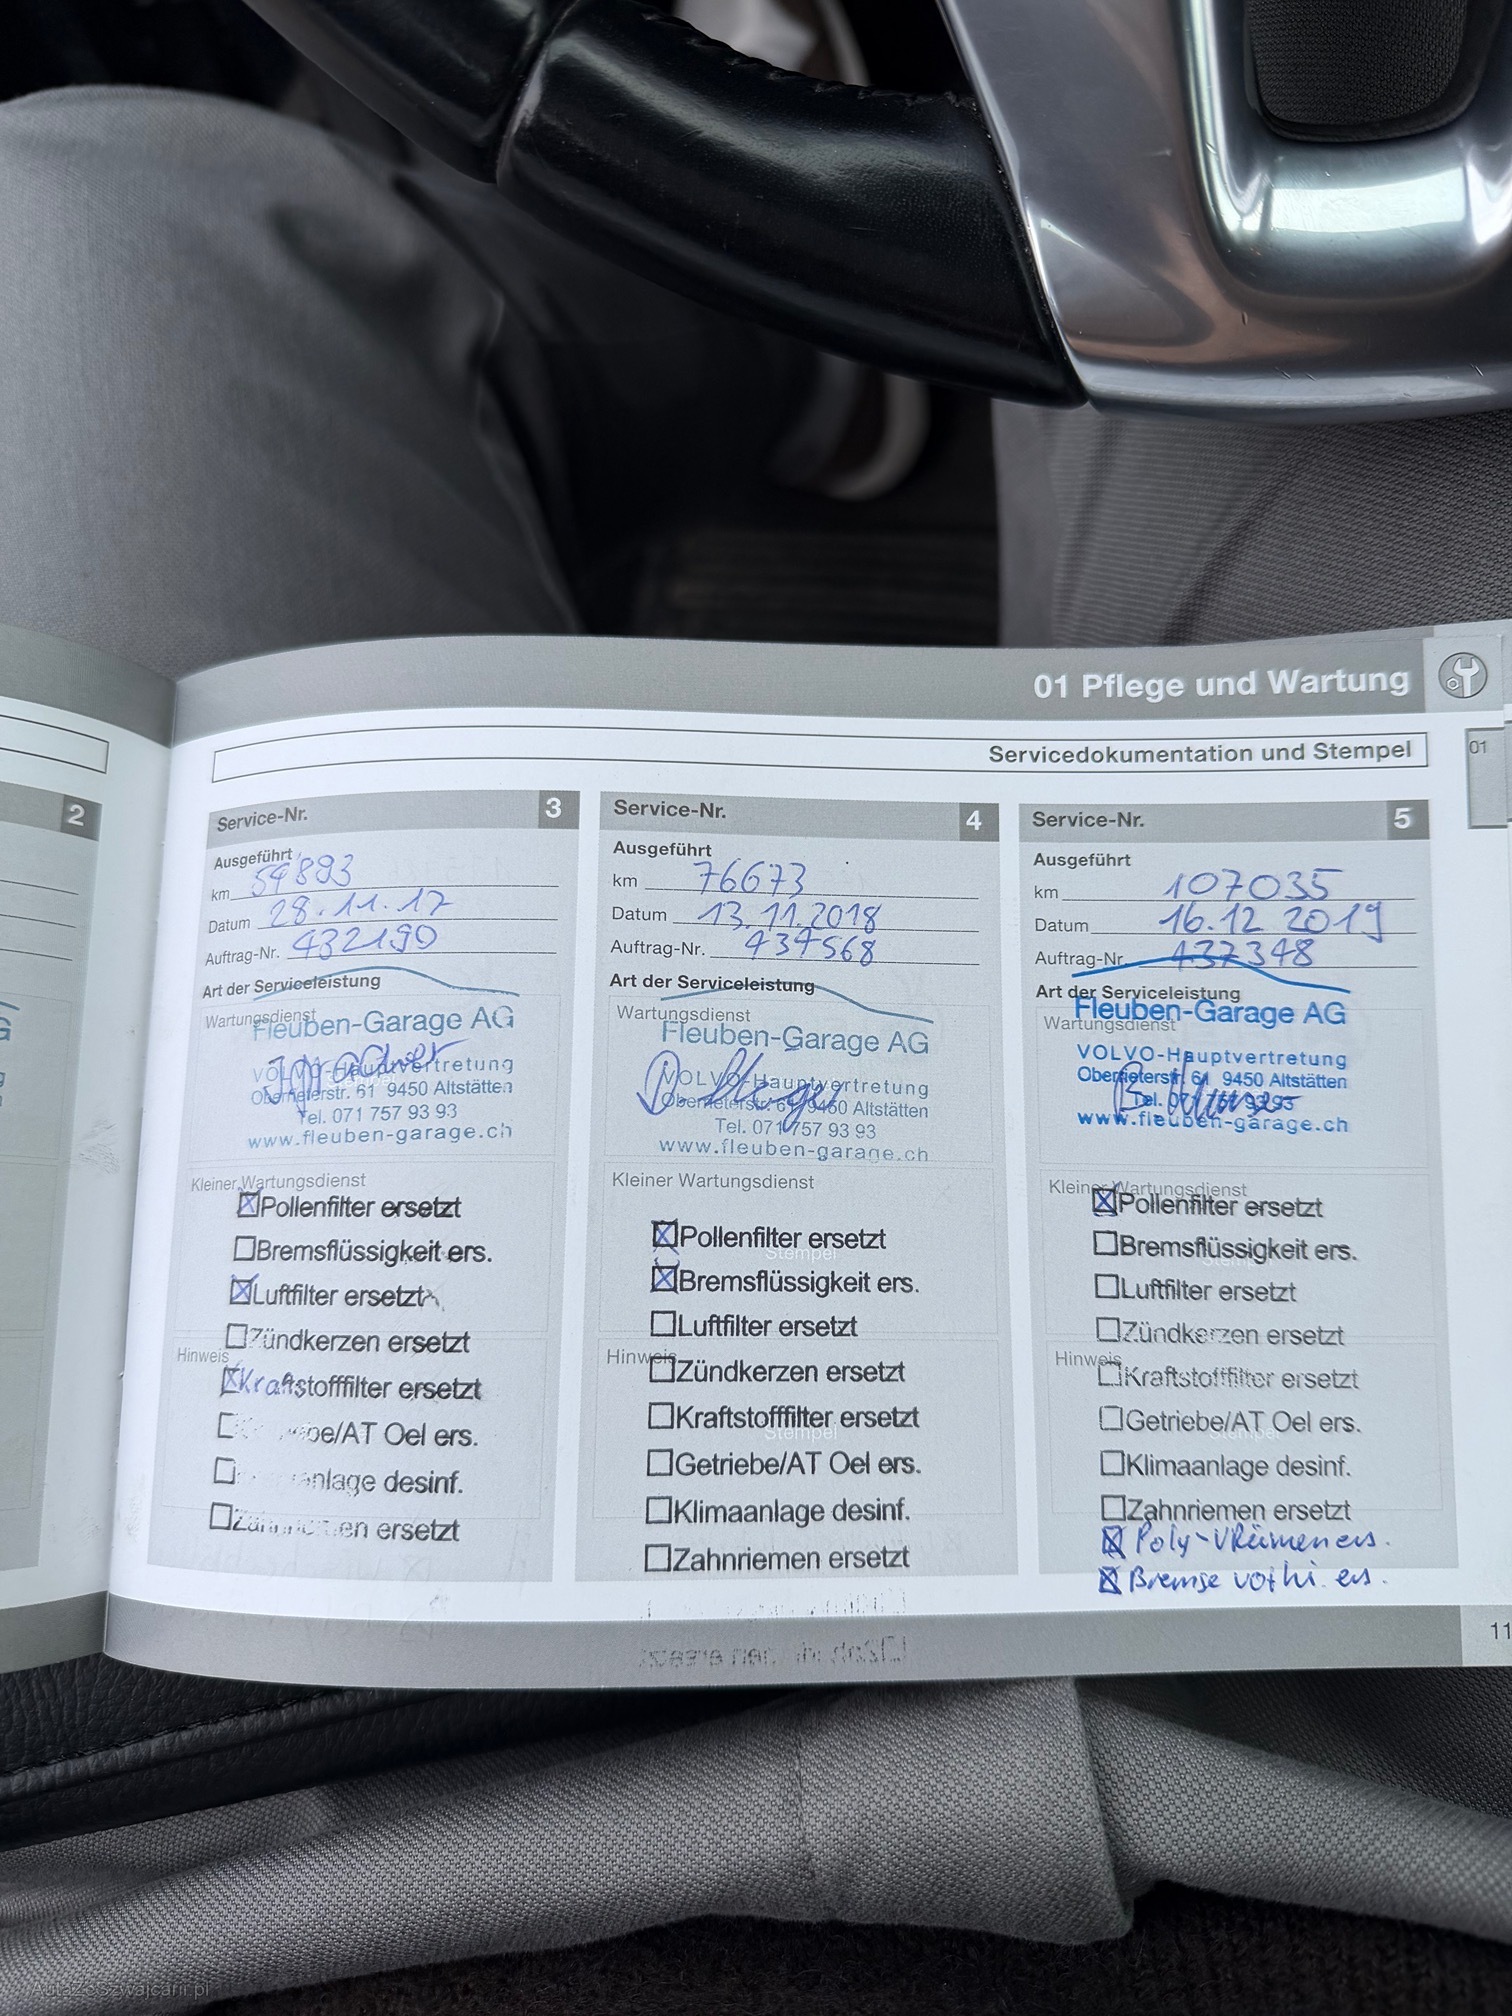 01 Pflege und Wartung
Servicedokumentation und Stempel
01
2
Service-Nr. 3
Ausgeführt
km 54893
Datum 28.11.17
Auftrag-Nr. 432190
Art der Serviceleistung
Wartungsdienst
Fleuben-Garage AG
VOLVO-Hauptvertretung
Oberrieterstr. 61 9450 Altstätten
Tel. 071 757 93 93
www.fleuben-garage.ch
Kleiner Wartungsdienst
☒Pollenfilter ersetzt
☐Bremsflüssigkeit ers.
☒Luftfilter ersetzt
☐Zündkerzen ersetzt
Hinweis
☒Kraftstofffilter ersetzt
☐ be/AT Oel ers.
☐ anlage desinf.
☐Zahnriemen ersetzt
Service-Nr. 4
Ausgeführt
km 76673
Datum 13.11.2018
Auftrag-Nr. 434568
Art der Serviceleistung
Wartungsdienst
Fleuben-Garage AG
VOLVO-Hauptvertretung
Oberrieterstr. 61 9450 Altstätten
Tel. 071 757 93 93
www.fleuben-garage.ch
Kleiner Wartungsdienst
☒Pollenfilter ersetzt
Stempel
☒Bremsflüssigkeit ers.
☐Luftfilter ersetzt
Hinweis
☐Zündkerzen ersetzt
☐Kraftstofffilter ersetzt
Stempel
☐Getriebe/AT Oel ers.
☐Klimaanlage desinf.
☐Zahnriemen ersetzt
Service-Nr. 5
Ausgeführt
km 107035
Datum 16.12 2019
Auftrag-Nr. 437348
Art der Serviceleistung
Fleuben-Garage AG
Wartungsdienst
VOLVO-Hauptvertretung
Oberrieterstr. 61 9450 Altstätten
Tel. 071 757 93 93
www.fleuben-garage.ch
Kleiner Wartungsdienst
☒Pollenfilter ersetzt
☐Bremsflüssigkeit ers.
Stempel
☐Luftfilter ersetzt
☐Zündkerzen ersetzt
Hinweis
☐Kraftstofffilter ersetzt
☐Getriebe/AT Oel ers.
Stempel
☐Klimaanlage desinf.
☐Zahnriemen ersetzt
☒ Poly-VRiemen ers.
☒ Bremse vo+hi. ers.
11
AutaZeSzwajcarii.pl